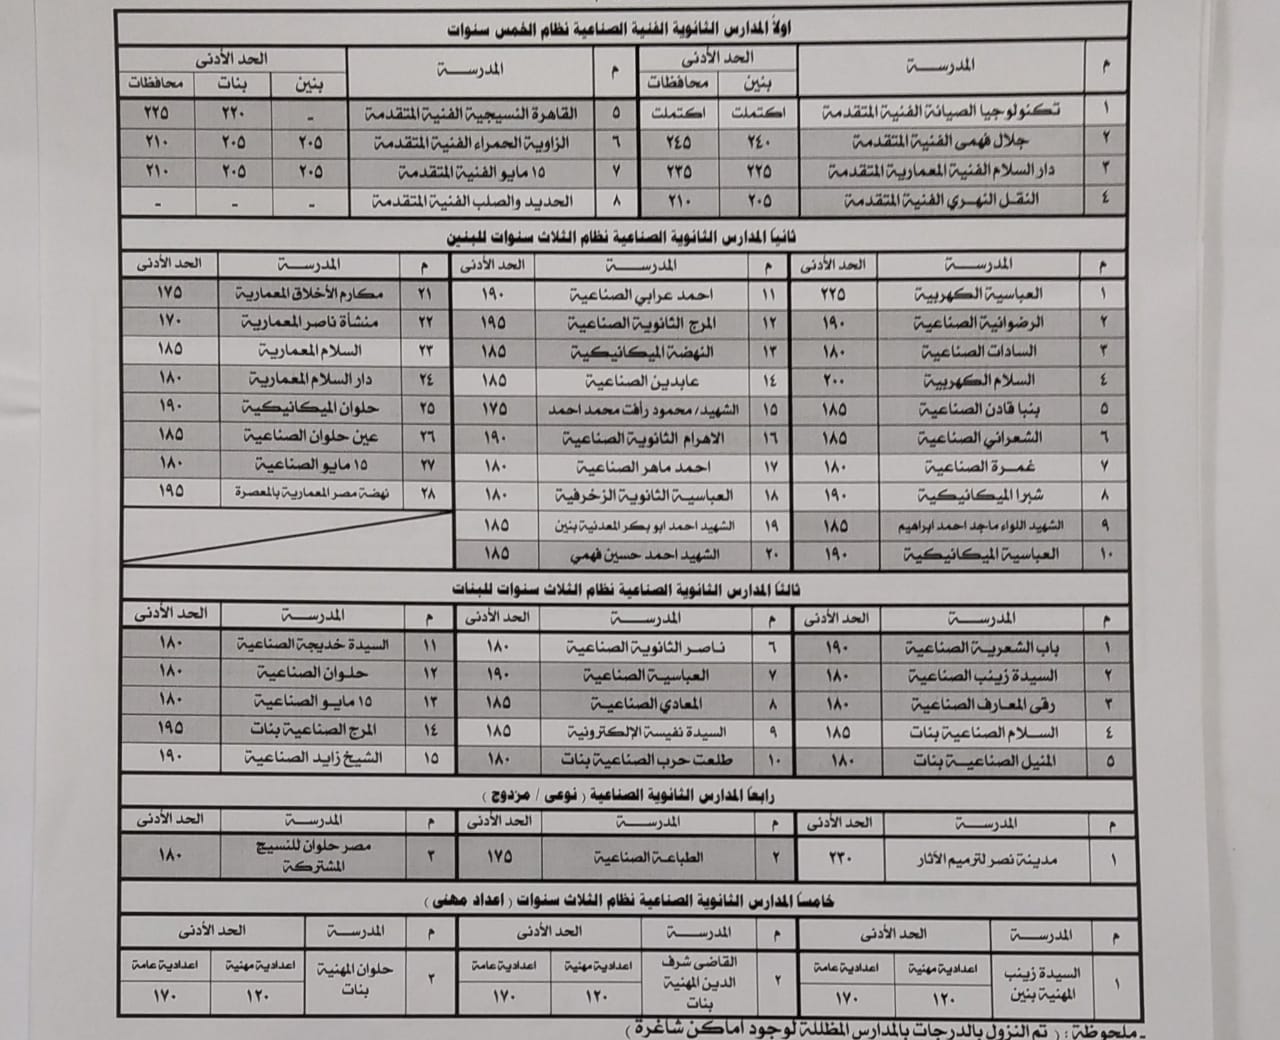 اولاً المدارس الثانوية الفنية الصناعية نظام الخمس سنوات
م المدرسة الحد الأدنى م المدرسة الحد الأدنى
بنين محافظات بنين بنات محافظات
١ تكنولوجيا الصيانة الفنية المتقدمة اكتملت اكتملت ٥ القاهرة النسيجية الفنية المتقدمة - ٢٢٠ ٢٢٥
٢ جلال فهمى الفنية المتقدمة ٢٤٠ ٢٤٥ ٦ الزاوية الحمراء الفنية المتقدمة ٢٠٥ ٢٠٥ ٢١٠
٣ دار السلام الفنية المعمارية المتقدمة ٢٢٥ ٢٣٥ ٧ ١٥ مايو الفنية المتقدمة ٢٠٥ ٢٠٥ ٢١٠
٤ النقل النهري الفنية المتقدمة ٢٠٥ ٢١٠ ٨ الحديد والصلب الفنية المتقدمة - - -
ثانياً المدارس الثانوية الصناعية نظام الثلاث سنوات للبنين
م المدرسة الحد الأدنى م المدرسة الحد الأدنى م المدرسة الحد الأدنى
١ العباسية الكهربية ٢٢٥ ١١ احمد عرابي الصناعية ١٩٠ ٢١ مكارم الأخلاق المعمارية ١٧٥
٢ الرضوانية الصناعية ١٩٠ ١٢ المرج الثانوية الصناعية ١٩٥ ٢٢ منشأة ناصر المعمارية ١٧٠
٣ السادات الصناعية ١٨٠ ١٣ النهضة الميكانيكية ١٨٥ ٢٣ السلام المعمارية ١٨٥
٤ السلام الكهربية ٢٠٠ ١٤ عابدين الصناعية ١٨٥ ٢٤ دار السلام المعمارية ١٨٠
٥ بنبا قادن الصناعية ١٨٥ ١٥ الشهيد/ محمود رأفت محمد احمد ١٧٥ ٢٥ حلوان الميكانيكية ١٩٠
٦ الشعراني الصناعية ١٨٥ ١٦ الاهرام الثانوية الصناعية ١٩٠ ٢٦ عين حلوان الصناعية ١٨٥
٧ غمرة الصناعية ١٨٠ ١٧ احمد ماهر الصناعية ١٨٠ ٢٧ ١٥ مايو الصناعية ١٨٠
٨ شبرا الميكانيكية ١٩٠ ١٨ العباسية الثانوية الزخرفية ١٨٠ ٢٨ نهضة مصر المعمارية بالمعصرة ١٩٥
٩ الشهيد اللواء ماجد احمد ابراهيم ١٨٥ ١٩ الشهيد احمد ابو بكر المعدنية بنين ١٨٥
١٠ العباسية الميكانيكية ١٩٠ ٢٠ الشهيد احمد حسين فهمي ١٨٥
ثالثا المدارس الثانوية الصناعية نظام الثلاث سنوات للبنات
م المدرسة الحد الأدنى م المدرسة الحد الأدنى م المدرسة الحد الأدنى
١ باب الشعرية الصناعية ١٩٠ ٦ ناصر الثانوية الصناعية ١٨٠ ١١ السيدة خديجة الصناعية ١٨٠
٢ السيدة زينب الصناعية ١٨٠ ٧ العباسية الصناعية ١٩٠ ١٢ حلوان الصناعية ١٨٠
٣ رقى المعارف الصناعية ١٨٠ ٨ المعادي الصناعية ١٨٥ ١٣ ١٥ مايو الصناعية ١٨٠
٤ السلام الصناعية بنات ١٨٥ ٩ السيدة نفيسة الإلكترونية ١٨٥ ١٤ المرج الصناعية بنات ١٩٥
٥ المنيل الصناعية بنات ١٨٠ ١٠ طلعت حرب الصناعية بنات ١٨٠ ١٥ الشيخ زايد الصناعية ١٩٠
رابعاً المدارس الثانوية الصناعية ( نوعى / مزدوج )
م المدرسة الحد الأدنى م المدرسة الحد الأدنى م المدرسة الحد الأدنى
١ مدينة نصر لترميم الآثار ٢٣٠ ٢ الطباعة الصناعية ١٧٥ ٣ مصر حلوان للنسيج المشتركة ١٨٠
خامساً المدارس الثانوية الصناعية نظام الثلاث سنوات ( اعداد مهنى )
م المدرسة الحد الأدنى م المدرسة الحد الأدنى م المدرسة الحد الأدنى
١ السيدة زينب المهنية بنين اعدادية مهنية اعدادية عامة ٢ القاضى شرف الدين المهنية بنات اعدادية مهنية اعدادية عامة ٣ حلوان المهنية بنات اعدادية مهنية اعدادية عامة
١٢٠ ١٧٠ ١٢٠ ١٧٠ ١٢٠ ١٧٠
- ملحوظة : ( تم النزول بالدرجات بالمدارس المظللة لوجود أماكن شاغرة )